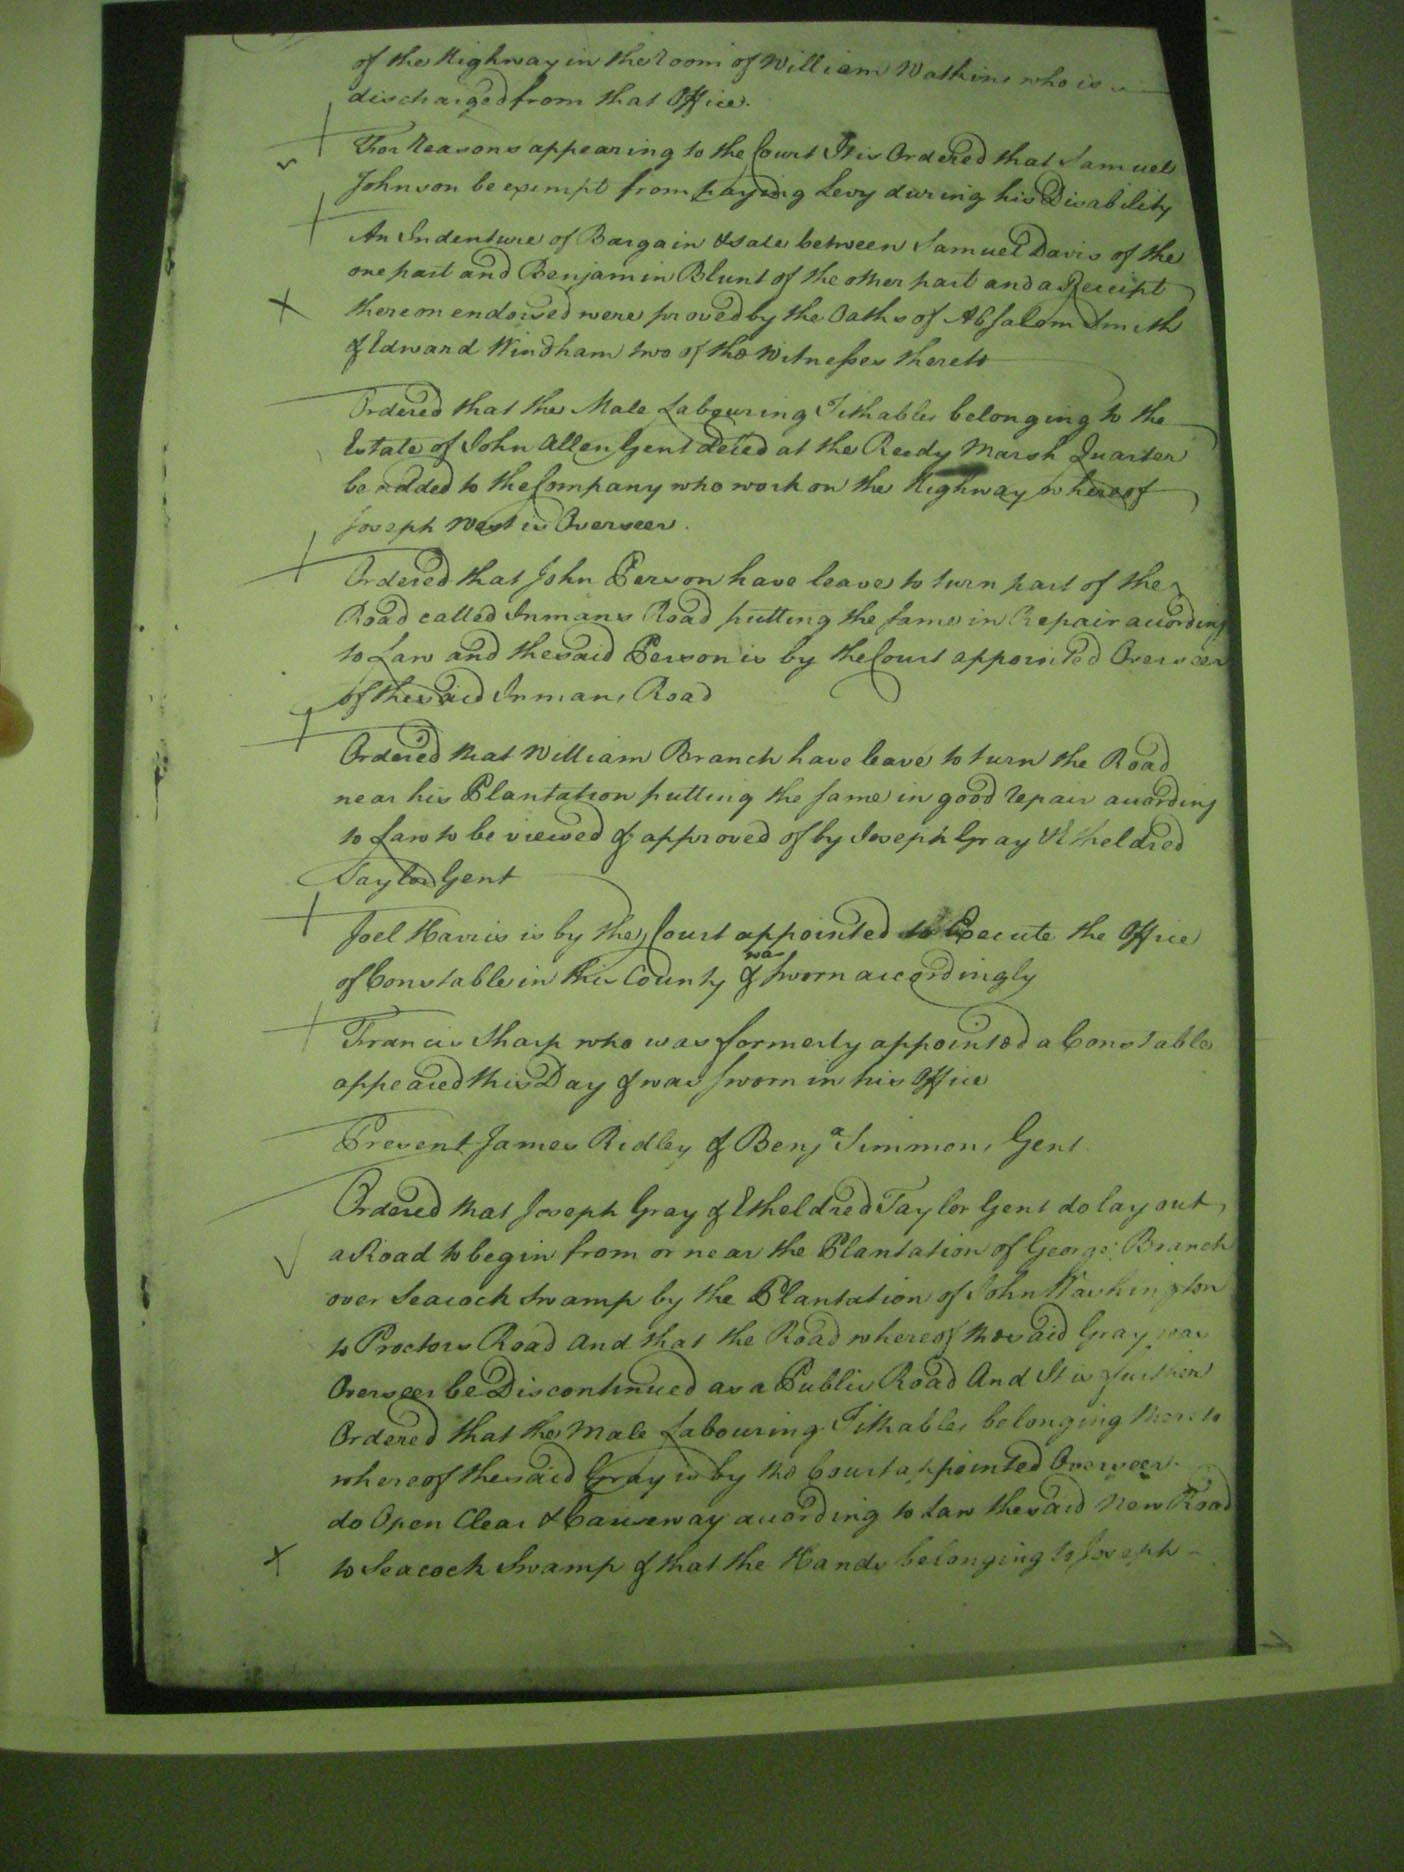 of the Highway in the room of William Watkins who is
discharged from that Office.
For Reasons appearing to the Court It is Ordered that Samuel
Johnson be exempt from paying Levy during his Disability
An Indenture of Bargain & sale between Samuel Davis of the
one part and Benjamin Blunt of the other part and a Receipt
thereon endorsed were proved by the Oaths of Absalom Smith
& Edward Windham two of the Witnesses thereto
Ordered that the Male Labouring Tithables belonging to the
Estate of John Allen Gent deced at the Reedy Marsh Quarter
be added to the Company who work on the Highway whereof
Joseph West is Overseer.
Ordered that John Person have leave to turn part of the
Road called Inmans Road putting the same in Repair according
to Law and the said Person is by the Court appointed Overseer
of the said Inmans Road
Ordered that William Branch have leave to turn the Road
near his Plantation putting the same in good repair according
to Law to be viewed & approved of by Joseph Gray & Etheldred
Taylor Gent
Joel Harris is by the Court appointed to Execute the Office
of Constable in this County & was sworn accordingly
Francis Sharp who was formerly appointed a Constable
appeared this Day & was sworn in his Office
Present James Ridley & Benja Simmons Gent
Ordered that Joseph Gray & Etheldred Taylor Gent do lay out
a Road to begin from or near the Plantation of George Branch
over Seacock Swamp by the Plantation of John Washington
to Proctors Road and that the Road whereof the said Gray was
Overseer be Discontinued as a Public Road And It is further
Ordered that the Male Labouring Tithables belonging thereto
whereof the said Gray is by the Court appointed Overseer
do Open Clear & Causeway according to Law the said New Road
to Seacock Swamp & that the Hands belonging to Joseph